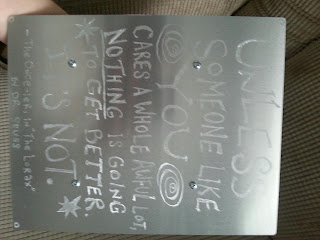 UNLESS
SOMEONE LIKE
YOU
CARES A WHOLE AWFUL LOT,
NOTHING IS GOING
TO GET BETTER.
IT'S NOT.
- The Once-ler in "The Lorax"
by DR. SEUSS